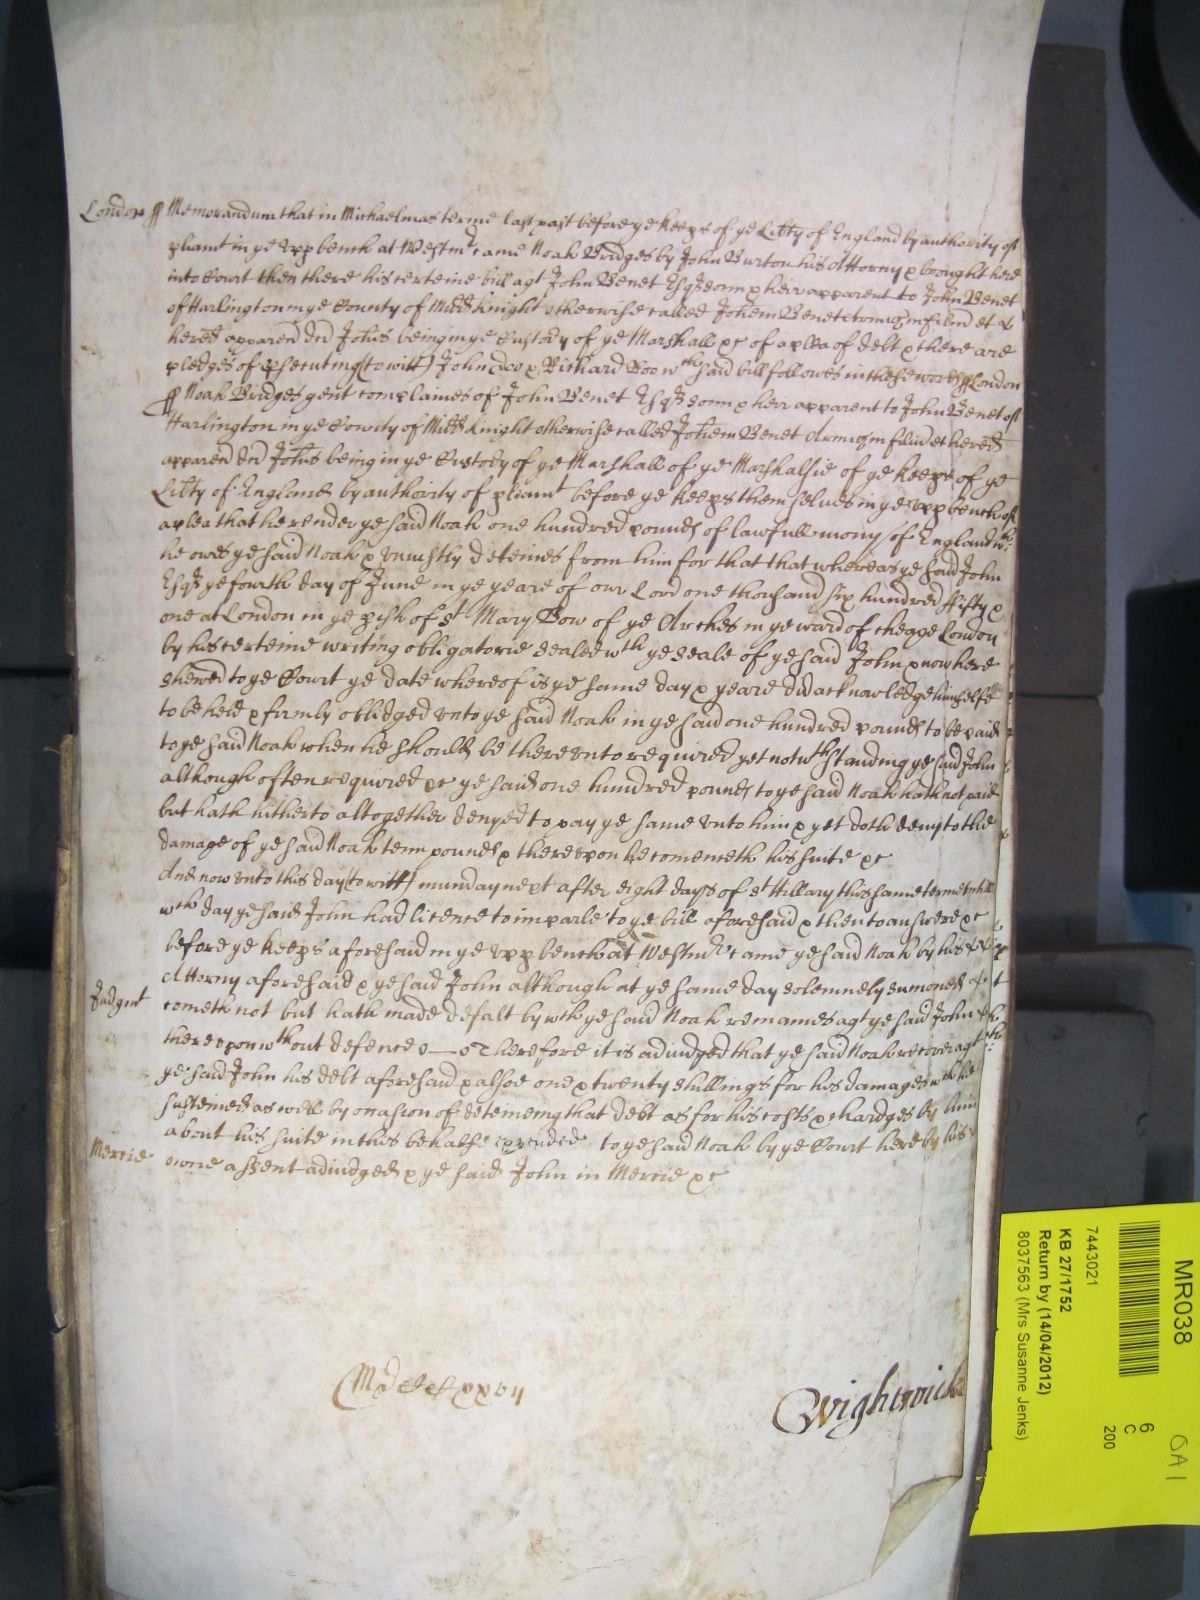 London ss Memorandum that in Michaelmas terme last past before ye keeps of ye Libty of England by authority of
pliamt in ye upp bench at Westmr came Noah Bridges by John Burton his Attorny & brought here
into Court then there his certeine bill agt John Benet Esqr sonn & heir apparent to John Benet
of Harlington in ye County of Midd Knight otherwise called Johem Benet Armigm filiu et
hered apparen dci Johis being in ye Custody of ye Marshall &c of a plea of debt & there are
pledges of psecuting (to witt) John Doo & Richard Roo wch said bill followes in these words ss London
ss Noah Bridges gent complaines of John Benet Esqr sonn & heir apparent to John Benet of
Harlington in ye County of Midd Knight otherwise called Johem Benet Armigm filiu et hered
apparen dci Johis being in ye Custody of ye Marshall of ye Marshalsie of ye keeps of ye
Libty of England by authority of pliamt before ye keeps themselves in ye upp bench of
a plea that he render ye said Noah one hundred pounds of lawfull mony of England wch
he owes ye said Noah & uniustly deteines from him for that that whereas ye said John
Esqr ye fourth day of June in ye yeare of our Lord one thousand six hundred ffifty &
one at London in ye pish of St Mary Bow of ye Arches in ye ward of cheape London
by his certeine writing obligatorie sealed wth ye seale of ye said John & now here
shewed to ye Court ye date whereof is ye same day & yeare did acknowledge himselfe
to be held & firmly obliged unto ye said Noah in ye said one hundred pounds to be paid
to ye said Noah when he should be thereunto required yet notwthstanding ye said John
although often required &c ye said one hundred pounds to ye said Noah hath not paid
but hath hitherto altogether denyed to pay ye same unto him & yet doth deny to the
damage of ye said Noah tenn pounds & thereupon he commeth his suite &c
And now unto this day (to witt) munday next after eight days of St Hillary this same terme untill
wch day ye said John had licence to imparle to ye bill aforesaid & then to answere &c
before ye keeps aforesaid in ye upp bench at Westmr came ye said Noah by his
Attorny aforesaid & ye said John although at ye same day solemnely sumoned
Judgmt cometh not but hath made defalt by wch ye said Noah remaines agt ye said John
thereupon wthout defence Therefore it is adiudged that ye said Noah recover agt
ye said John his debt aforesaid & alsoe one & twenty shillings for his damages wch he
susteined as well by occasion of deteineing that debt as for his costs & chardges by him
about his suite in this behalfe expended to ye said Noah by ye Court here by his
Mercie owne assent adiudged & ye said John in Mercie &c
Wightwick
MR038
7443021
KB 27/1752
Return by (14/04/2012)
8037563 (Mrs Susanne Jenks)
6
C
200
OA1